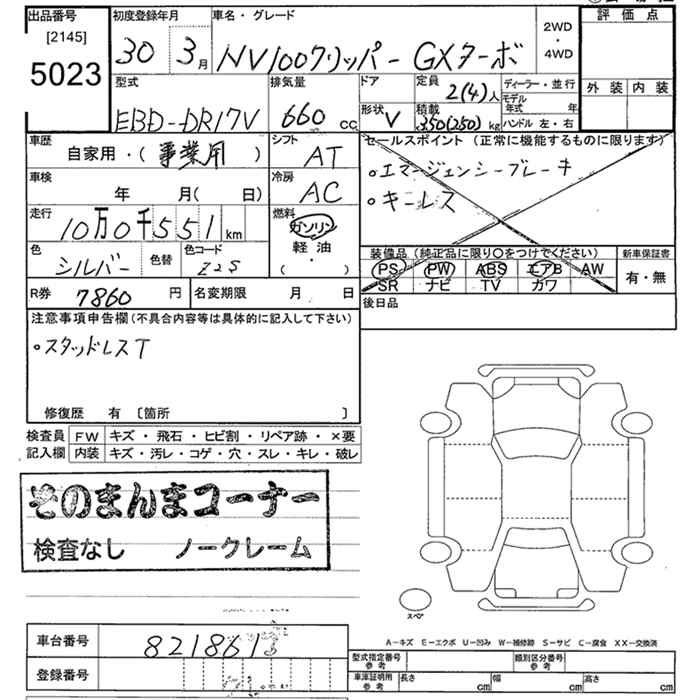 出品番号
[2145]
5023
初度登録年月
30 3月
車名・グレード
NV100クリッパー GXターボ
2WD
・
4WD
評価点
外装 内装
型式
EBD-DR17V
排気量
660 cc
ドア
形状 V
定員 2(4)人
積載 350(250) kg
ディーラー・並行
モデル年式 年
ハンドル 左・右
車歴
自家用・(事業用)
シフト
AT
セールスポイント (正常に機能するものに限ります)
・エマージェンシーブレーキ
・キーレス
車検
年 月(日)
冷房
AC
走行
10万0千551km
燃料
ガソリン
軽油
(・)
色
シルバー
色替
色コード
Z2S
装備品(純正品に限り○をつけてください)
PS PW ABS エアB AW
SR ナビ TV カワ
新車保証書
有・無
R券 7860円
名変期限 月 日
後日品
注意事項申告欄(不具合内容等は具体的に記入して下さい)
・スタッドレスT
修復歴 有 [箇所 ]
検査員記入欄
FW キズ・飛石・ヒビ割・リペア跡・×要
内装 キズ・汚レ・コゲ・穴・スレ・キレ・破レ
そのまんまコーナー
検査なし ノークレーム
スペア
A-キズ E-エクボ U-凹み W-補修跡 S-サビ C-腐食 XX-交換済
車台番号
登録番号
型式指定番号 参考
類別区分番号 参考
車庫証明用 参考
長さ cm 幅 cm 高さ cm